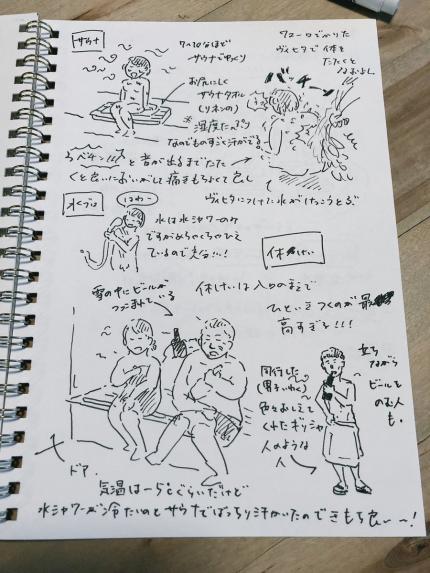 サウナ
7〜10分ほど
サウナでゆっくり
お尻にしく
サウナタオル
(リネンの)
※湿度たっぷり
なのでものすごく汗がでる。
フロートでかりた
ヴィヒタで体を
たたくと
なおよし
バッチーン
うベチン!!と音が出るまでたた
くと良いにおいがして痛きもちよくて良し
ヴィヒタにつけた水がけっこうとぶ
水ブロ
はわー
水は水シャワーのみ
ですがめちゃくちゃひえ
ているので充分!!!
休けい
雪の中にビールが
つっこまれている
休けいは入口のまえで
ひといきつくのが最
高すぎる!!!
同行した
(男子いわく)
色々おしえて
くれたギリシャ
人のような
人
立ち
ながら
ビールを
のむ人
も。
ドア
気温は-5℃ぐらいだけど
水シャワーが冷たいのとサウナでばっちり汗かいたのできもち良い〜!